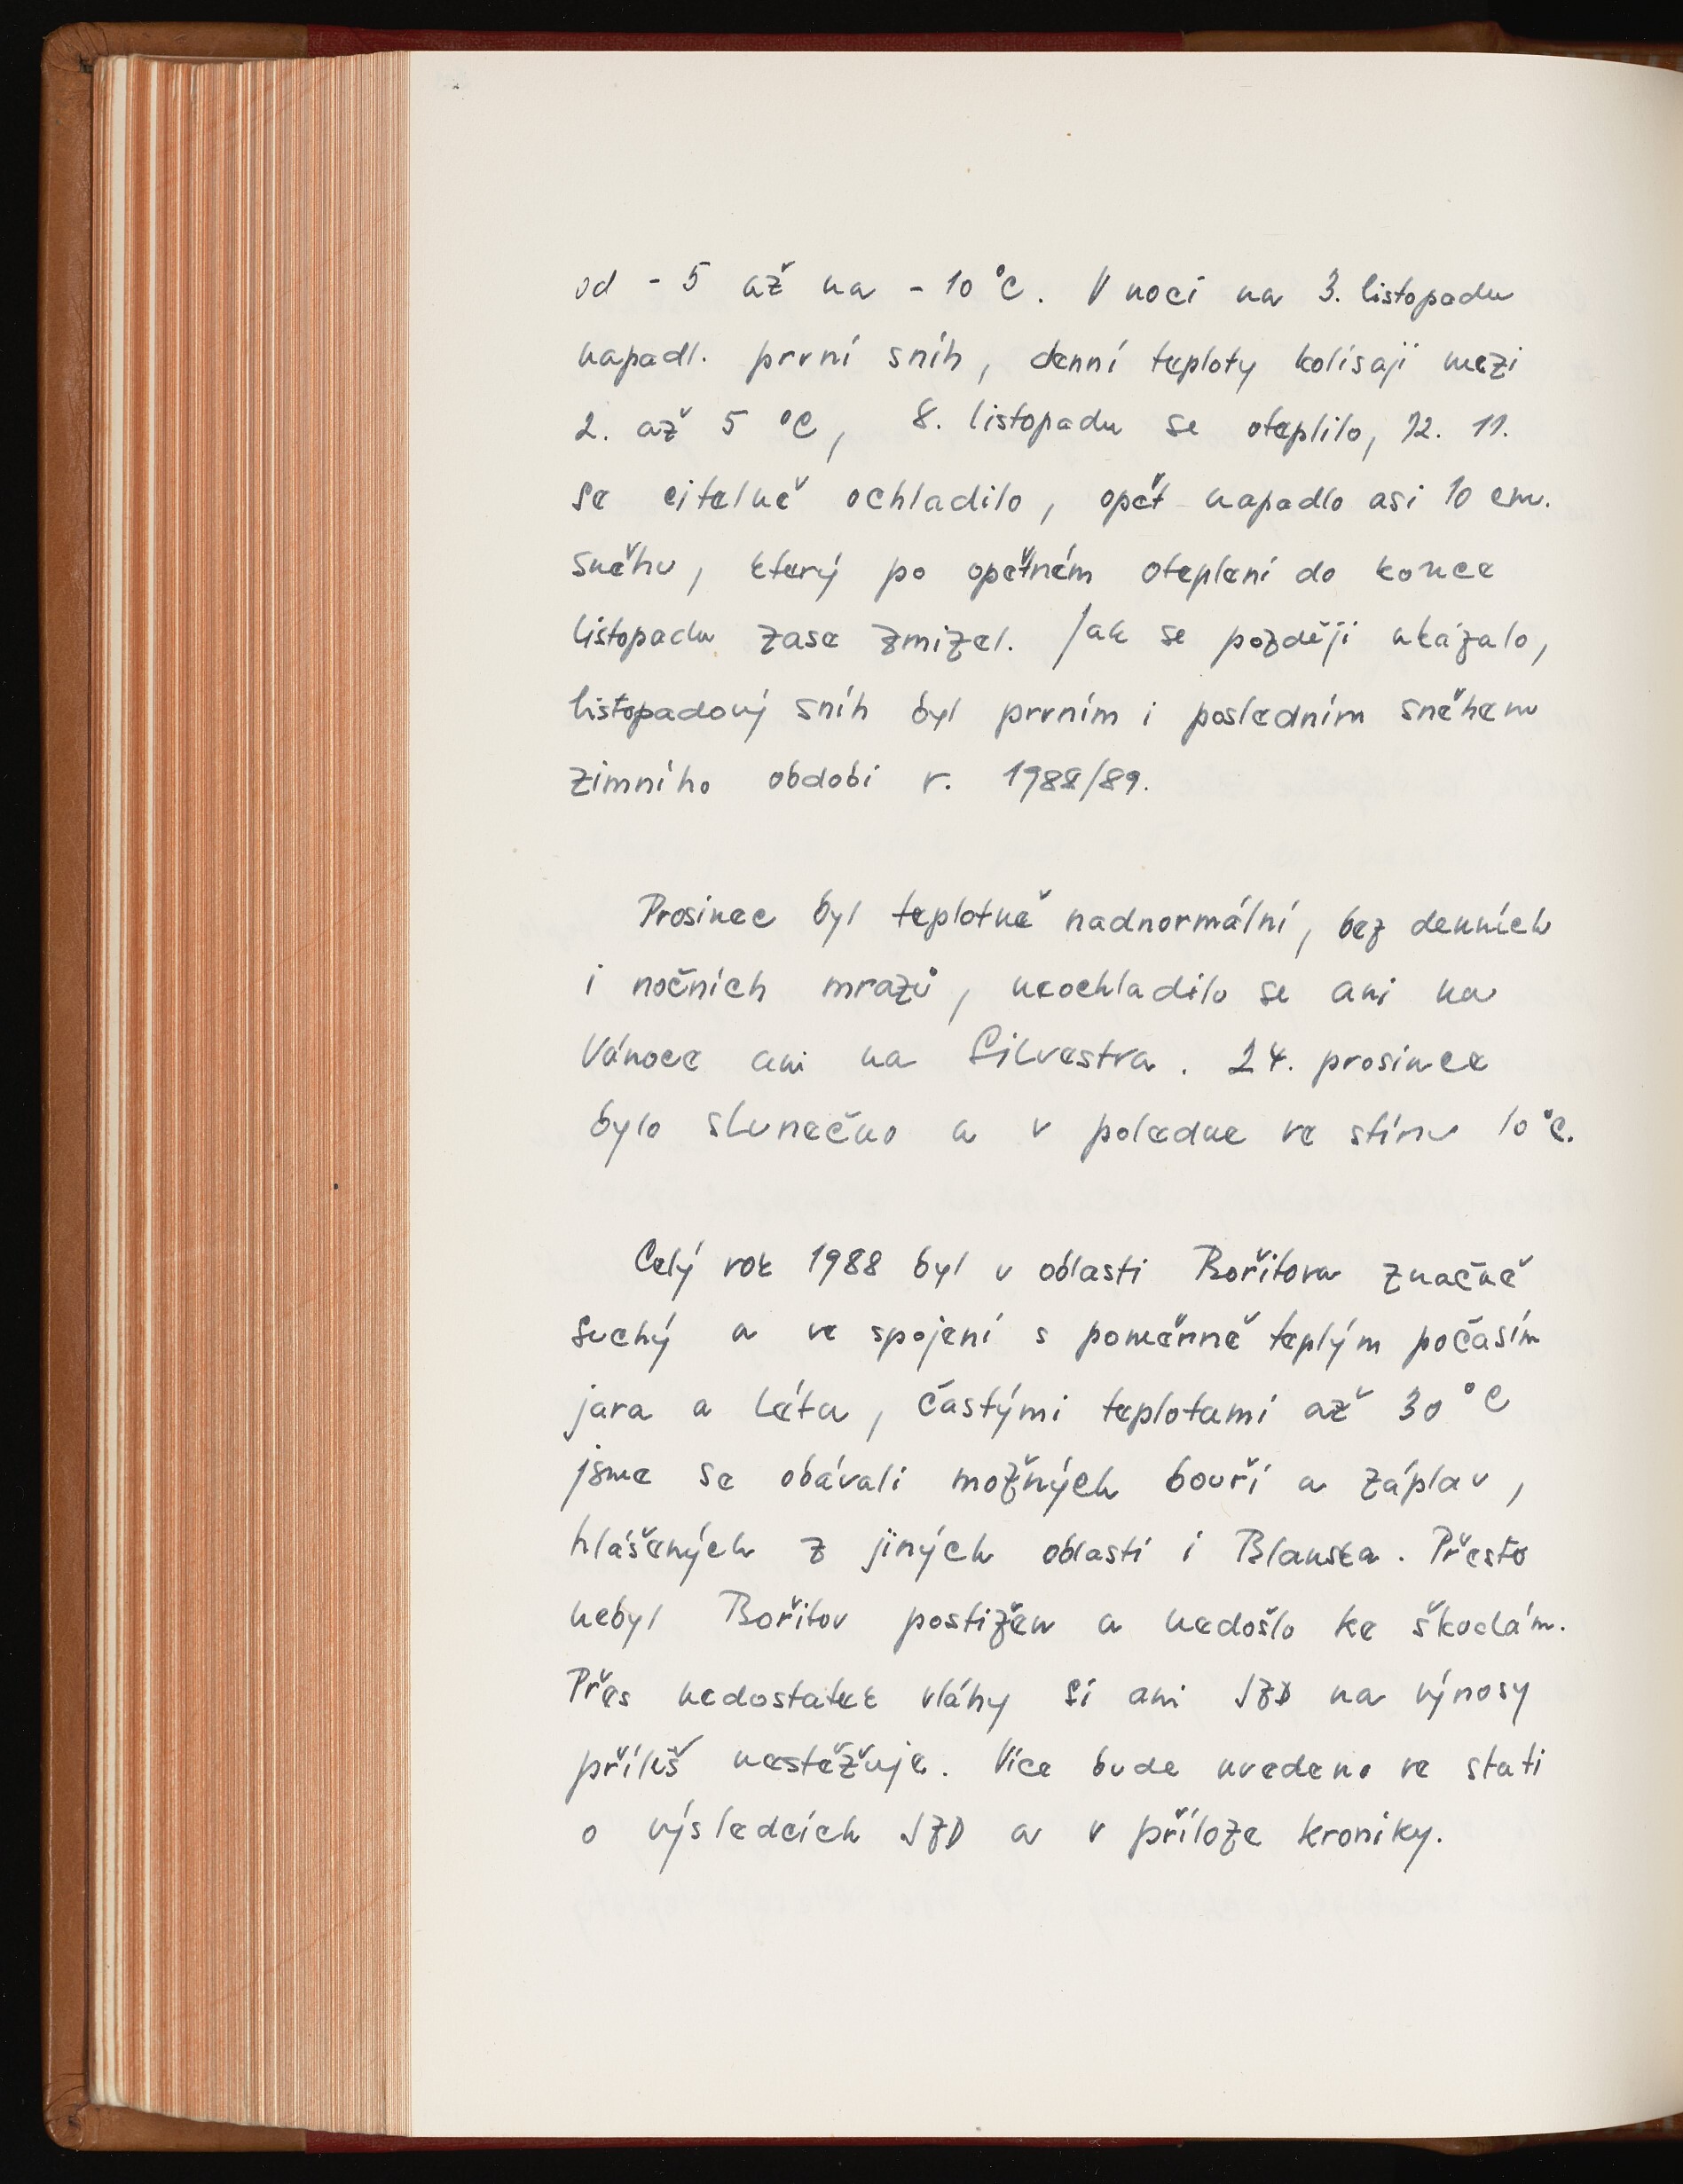 od - 5 až na - 10 °C. V noci na 3. listopadu
napadl. první sníh, denní teploty kolísají mezi
2. až 5 °C, 8. listopadu se oteplilo, 12. 11.
se citelně ochladilo, opět napadlo asi 10 cm.
sněhu, který po opětném oteplení do konce
listopadu zase zmizel. Jak se později ukázalo,
listopadový sníh byl prvním i posledním sněhem
zimního období r. 1988/89.
Prosinec byl teplotně nadnormální, bez denních
i nočních mrazů, neochladilo se ani na
Vánoce ani na Silvestra. 24. prosince
bylo slunečno a v poledne ve stínu 10 °C.
Celý rok 1988 byl v oblasti Bořitova značně
suchý a ve spojení s poměrně teplým počasím
jara a léta, častými teplotami až 30 °C
jsme se obávali možných bouří a záplav,
hlášených z jiných oblastí i Blanska. Přesto
nebyl Bořitov postižen a nedošlo ke škodám.
Přes nedostatek vláhy si ani JZD na výnosy
příliš nestěžuje. Více bude uvedeno ve stati
o výsledcích JZD a v příloze kroniky.